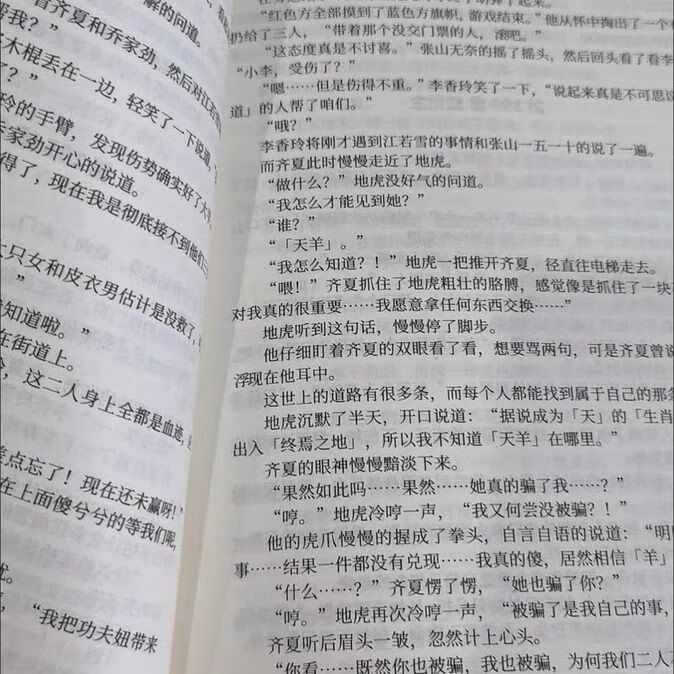 解的问道。
齐夏和乔家劲，然后对江若
我？”
木棍丢在一边，轻笑了一下说道
了？”
玲的手臂，发现伤势确实好了大
家劲开心的说道。
得了，现在我是彻底接不到他们
上只女和皮衣男估计是没救了，
知道啦。”
在街道上。
，这二人身上全都是血迹，
差点忘了！现在还未赢呀！”
在上面傻兮兮的等我们呢，
忧。
，“我把功夫妞带来
“红色方全部摸到了蓝色方旗帜，游戏结束。”他从怀中掏出了一个
扔给了三人，“带着那个没交门票的人，滚吧。”
“这态度真是不讨喜。”张山无奈的摇了摇头，然后回头看了看李
“小李，受伤了？”
“嗯……但是伤得不重。”李香玲笑了一下，“说起来真是不可思议
道」的人帮了咱们。”
“哦？”
李香玲将刚才遇到江若雪的事情和张山一五一十的说了一遍。
而齐夏此时慢慢走近了地虎。
“做什么？”地虎没好气的问道。
“我怎么才能见到她？”
“谁？”
“「天羊」。”
“我怎么知道？！”地虎一把推开齐夏，径直往电梯走去。
“喂！”齐夏抓住了地虎粗壮的胳膊，感觉像是抓住了一块
对我真的很重要……我愿意拿任何东西交换……”
地虎听到这句话，慢慢停了脚步。
他仔细盯着齐夏的双眼看了看，想要骂两句，可是齐夏曾说
浮现在他耳中。
这世上的道路有很多条，而每个人都能找到属于自己的那条
地虎沉默了半天，开口说道：“据说成为「天」的「生肖
出入「终焉之地」，所以我不知道「天羊」在哪里。”
齐夏的眼神慢慢黯淡下来。
“果然如此吗……果然……她真的骗了我……？”
“哼。”地虎冷哼一声，“我又何尝没被骗？！”
他的虎爪慢慢的握成了拳头，自言自语的说道：“明明
事……结果一件都没有兑现……我真的傻，居然相信「羊」
“什么……？”齐夏愣了愣，“她也骗了你？”
“哼。”地虎再次冷哼一声，“被骗了是我自己的事，
齐夏听后眉头一皱，忽然计上心头。
“你看……既然你也被骗，我也被骗，为何我们二人不